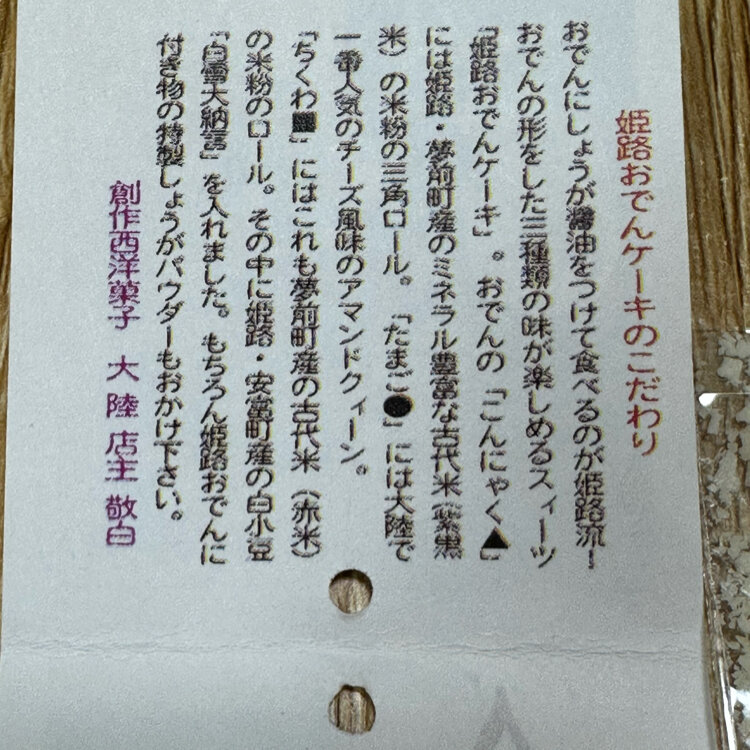 姫路おでんケーキのこだわり
おでんにしょうが醤油をつけて食べるのが姫路流！
おでんの形をした三種類の味が楽しめるスィーツ
「姫路おでんケーキ」。おでんの「こんにゃく▲」
には姫路・夢前町産のミネラル豊富な古代米（紫黒
米）の米粉の三角ロール。「たまご●」には大陸で
一番人気のチーズ風味のアマンドクィーン。
「ちくわ■」にはこれも夢前町産の古代米（赤米）
の米粉のロール。その中に姫路・安富町産の白小豆
「白雪大納言」を入れました。もちろん姫路おでんに
付き物の特製しょうがパウダーもおかけ下さい。
創作西洋菓子 大陸 店主 敬白